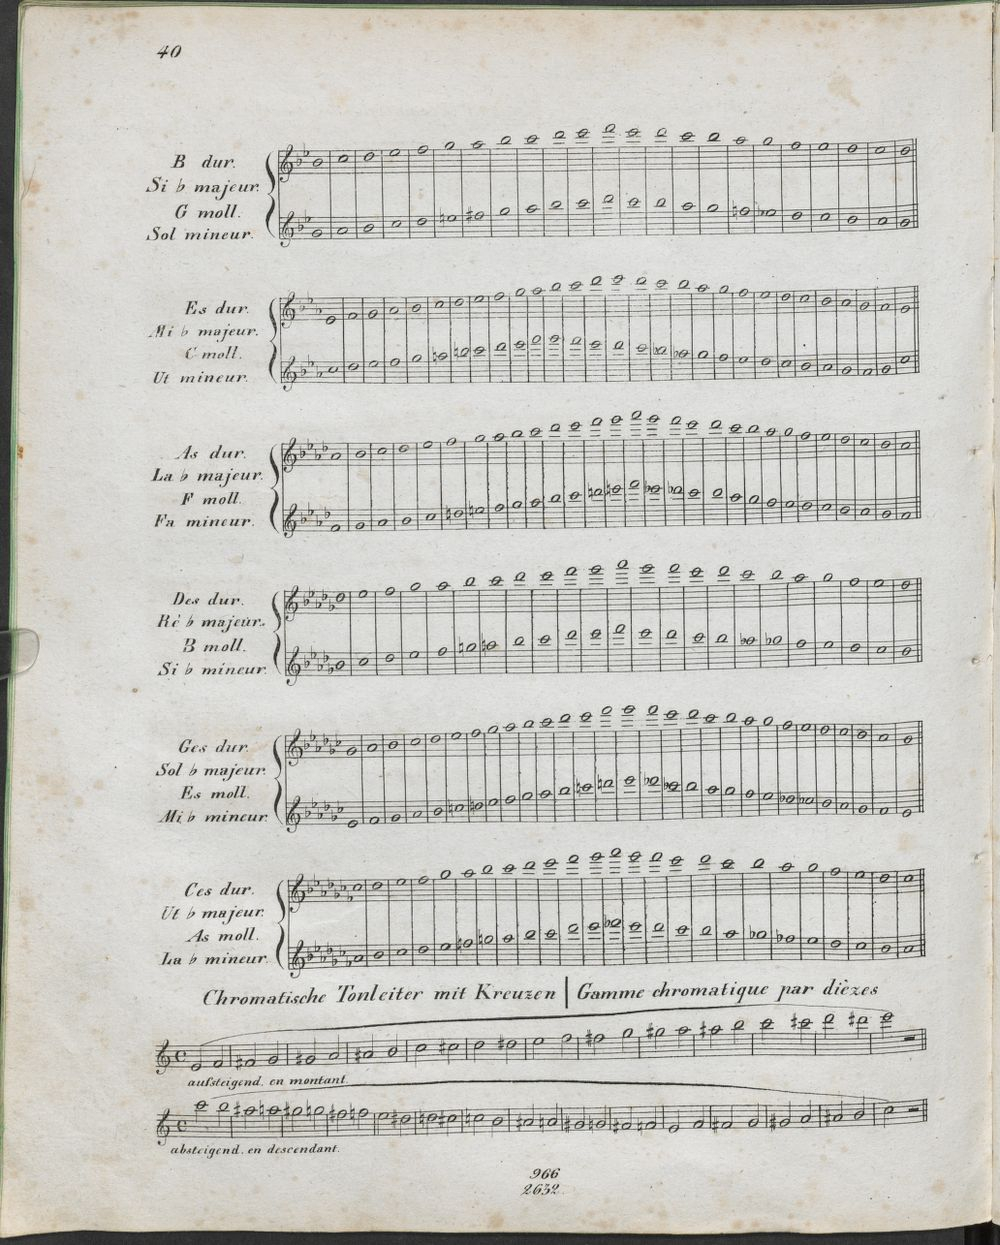 40
B dur.
Si ♭ majeur.
G moll.
Sol mineur.
Es dur.
Mi ♭ majeur.
C moll.
Ut mineur.
As dur.
La ♭ majeur.
F moll.
Fa mineur.
Des dur.
Ré ♭ majeur.
B moll.
Si ♭ mineur.
Ges dur.
Sol ♭ majeur.
Es moll.
Mi ♭ mineur.
Ces dur.
Ut ♭ majeur.
As moll.
La ♭ mineur.
Chromatische Tonleiter mit Kreuzen | Gamme chromatique par dièzes
aufsteigend. en montant.
absteigend. en descendant.
966
2632.